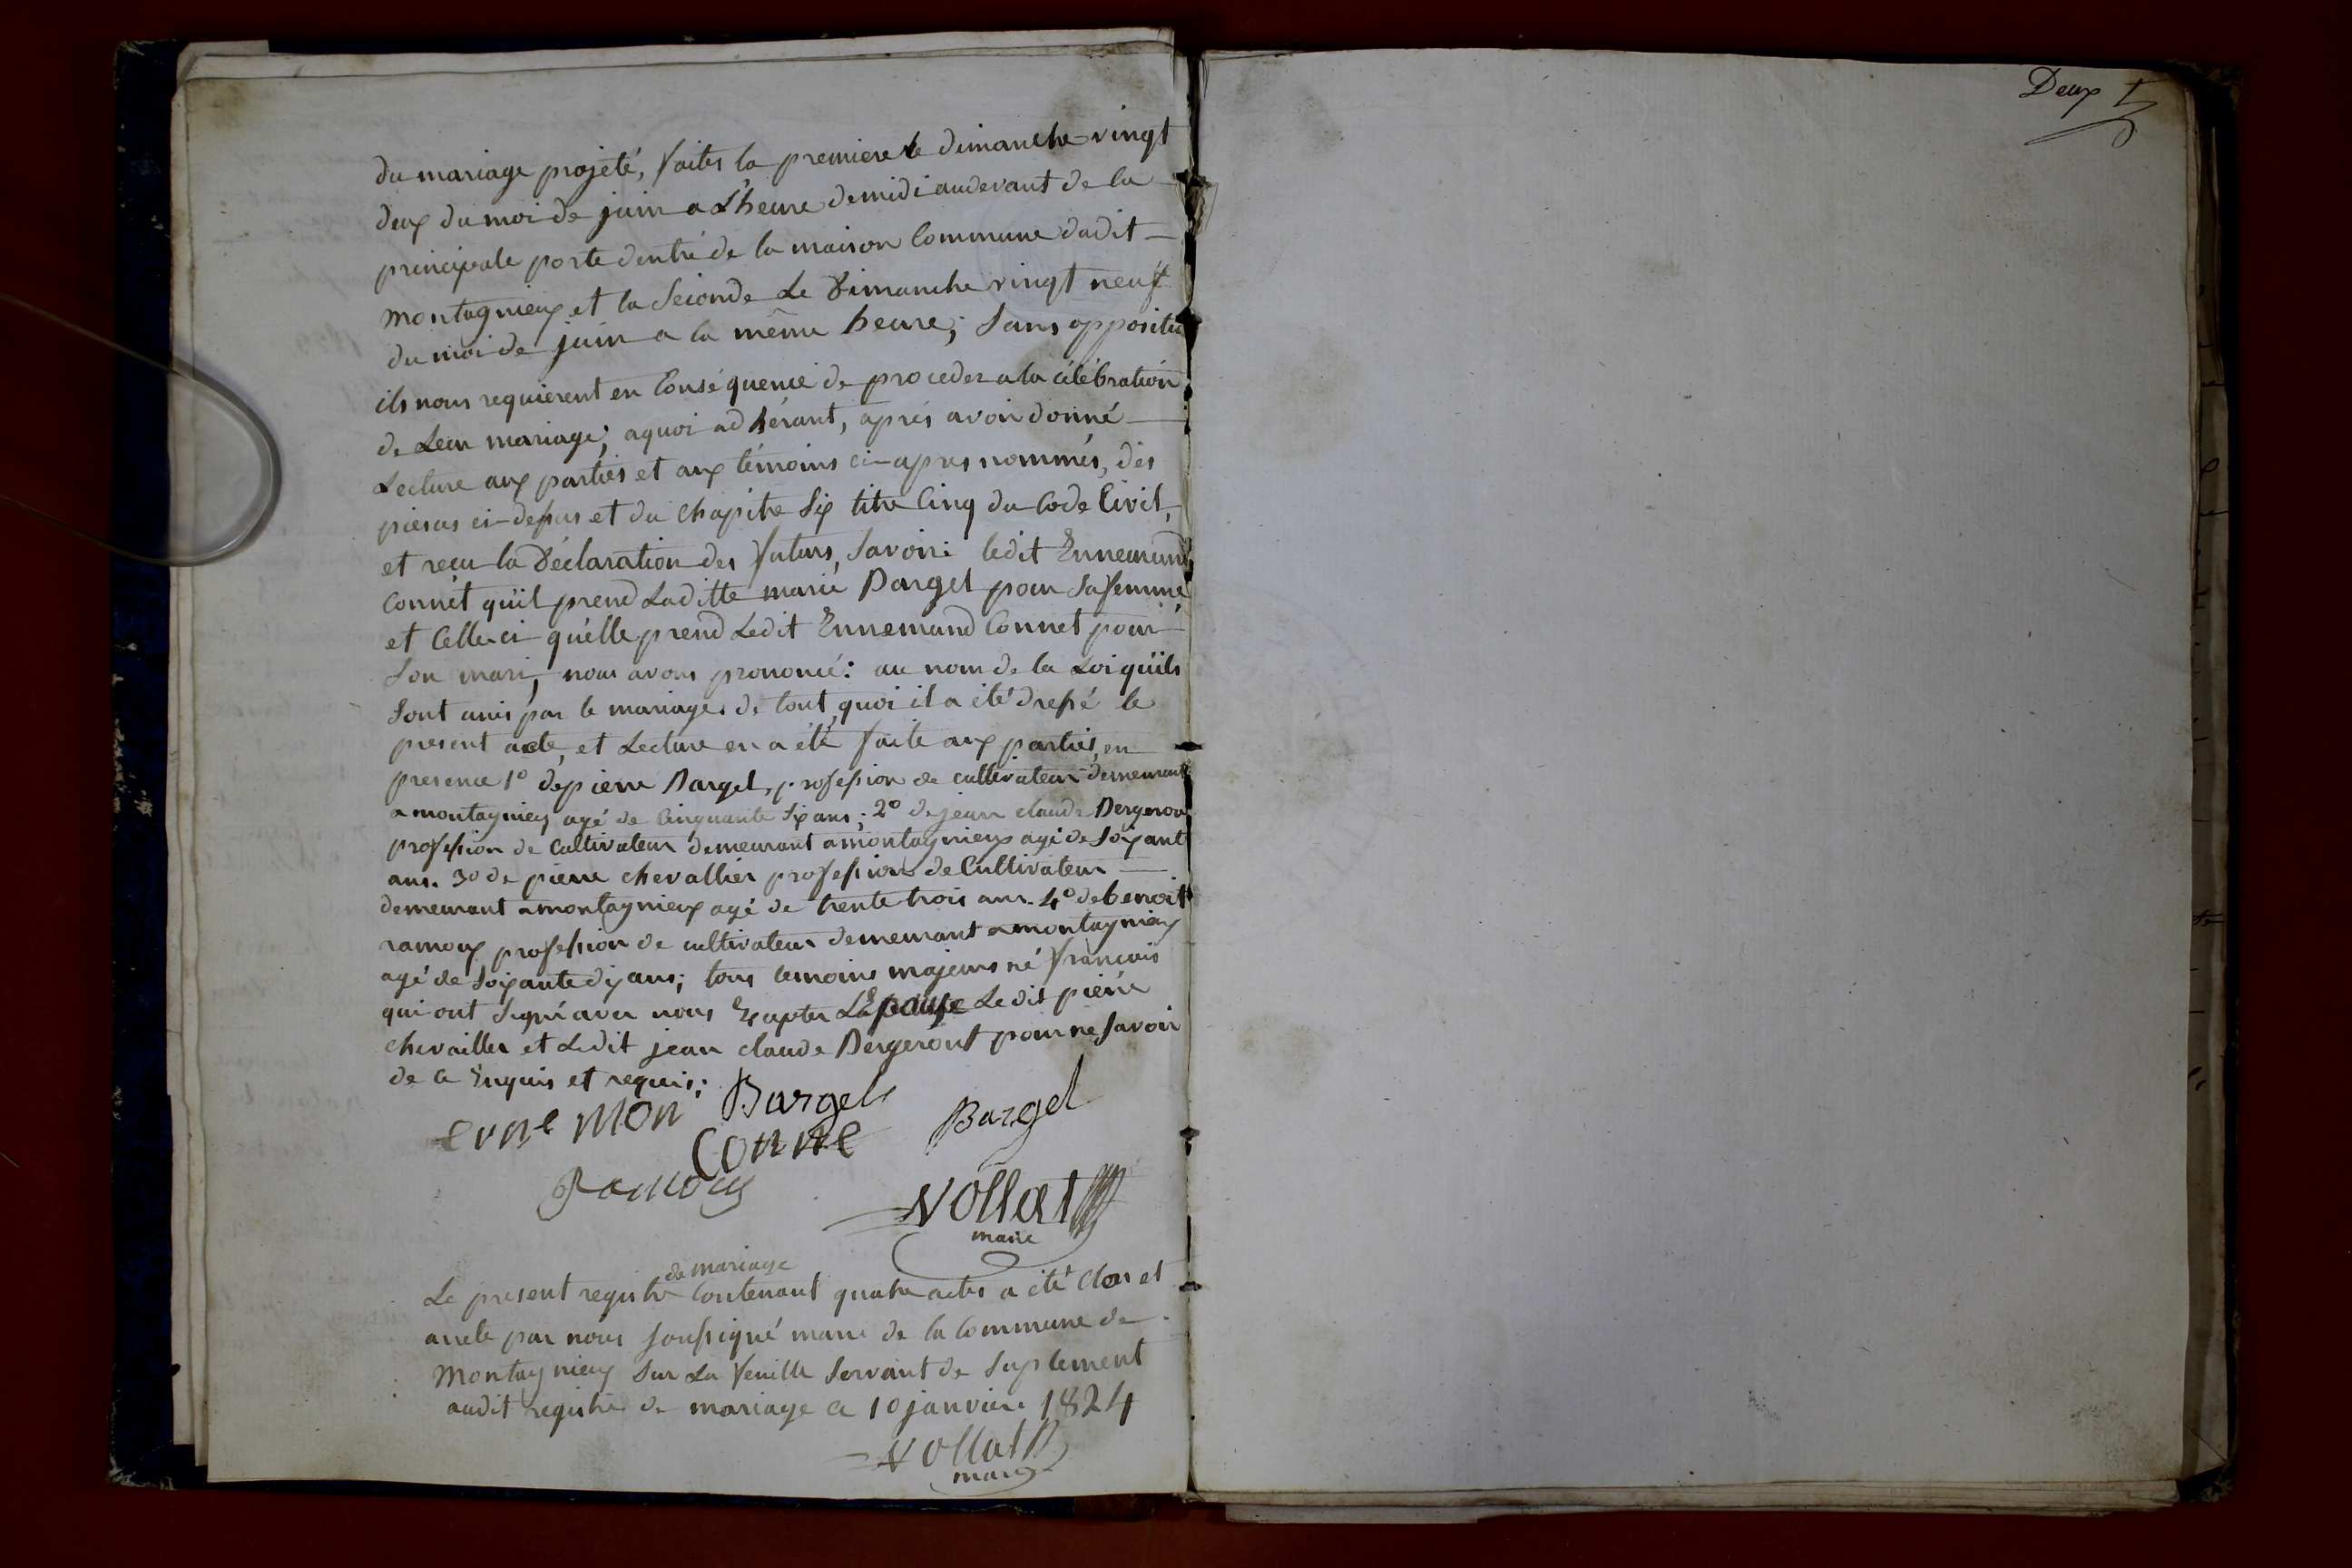 du mariage projeté, faites la premiere le dimanche vingt
deux du moi de juin a L'heure de midi audevant de la
principale porte dentré de la maison Commune dudit
montagnieux et la Seconde Le Dimanche vingt neuf
du moi de juin a la même heure; Sans oppositio
ils nous requierent en Conséquence de proceder a la célébration
de Leur mariage; aquoi adhérant, après avoir donné
Lecture aux parties et aux témoins ci-apres nommés, des
pieces ci-dessus et du Chapitre Six titre Cinq du Code Civil,
et reçu la Déclaration des futurs, Savoir: ledit Ennemund
Connet qu'il prend Laditte marie Bargel pour Sa femme
et Celle-ci qu'elle prend Ledit Ennemund Connet pour
Son mari, nous avons prononcé: au nom de la Loi qu'ils
Sont unis par le mariage. de tout quoi il a été dressé le
present acte, et Lecture en a été faite aux parties, en
presence 1º de pierre Bargel, profession de cultivateur demeurant
a montagnieux agé de Cinquante Six ans; 2º de jean claude Bergeron
profession de Cultivateur demeurant a montagnieux agé de Soixant
ans. 3º de pierre chevallier profession de Cultivateur
demeurant a montagnieux agé de trente trois ans. 4º de benoit
ramoux profession de cultivateur demeurant a montagnieux
agé de Soixante dix ans; tous temoins majeurs né francois
qui ont Signé avec nous Excepter L'Epouse Ledit pierre
chevailler et Ledit jean claude Bergeront pour ne Savoir
de ce Enquis et requis;
enne mon Bargel
Conne Bargel
Ramoux
Vollat
maire
de mariage
Le present registre Contenant quatre actes a été Clos et
arrete par nous Soussigné maire de la Commune de
Montagnieux Sur La feuille Servant de Suplement
audit registre de mariage ce 10 janvier 1824
Vollat
maire
Deux